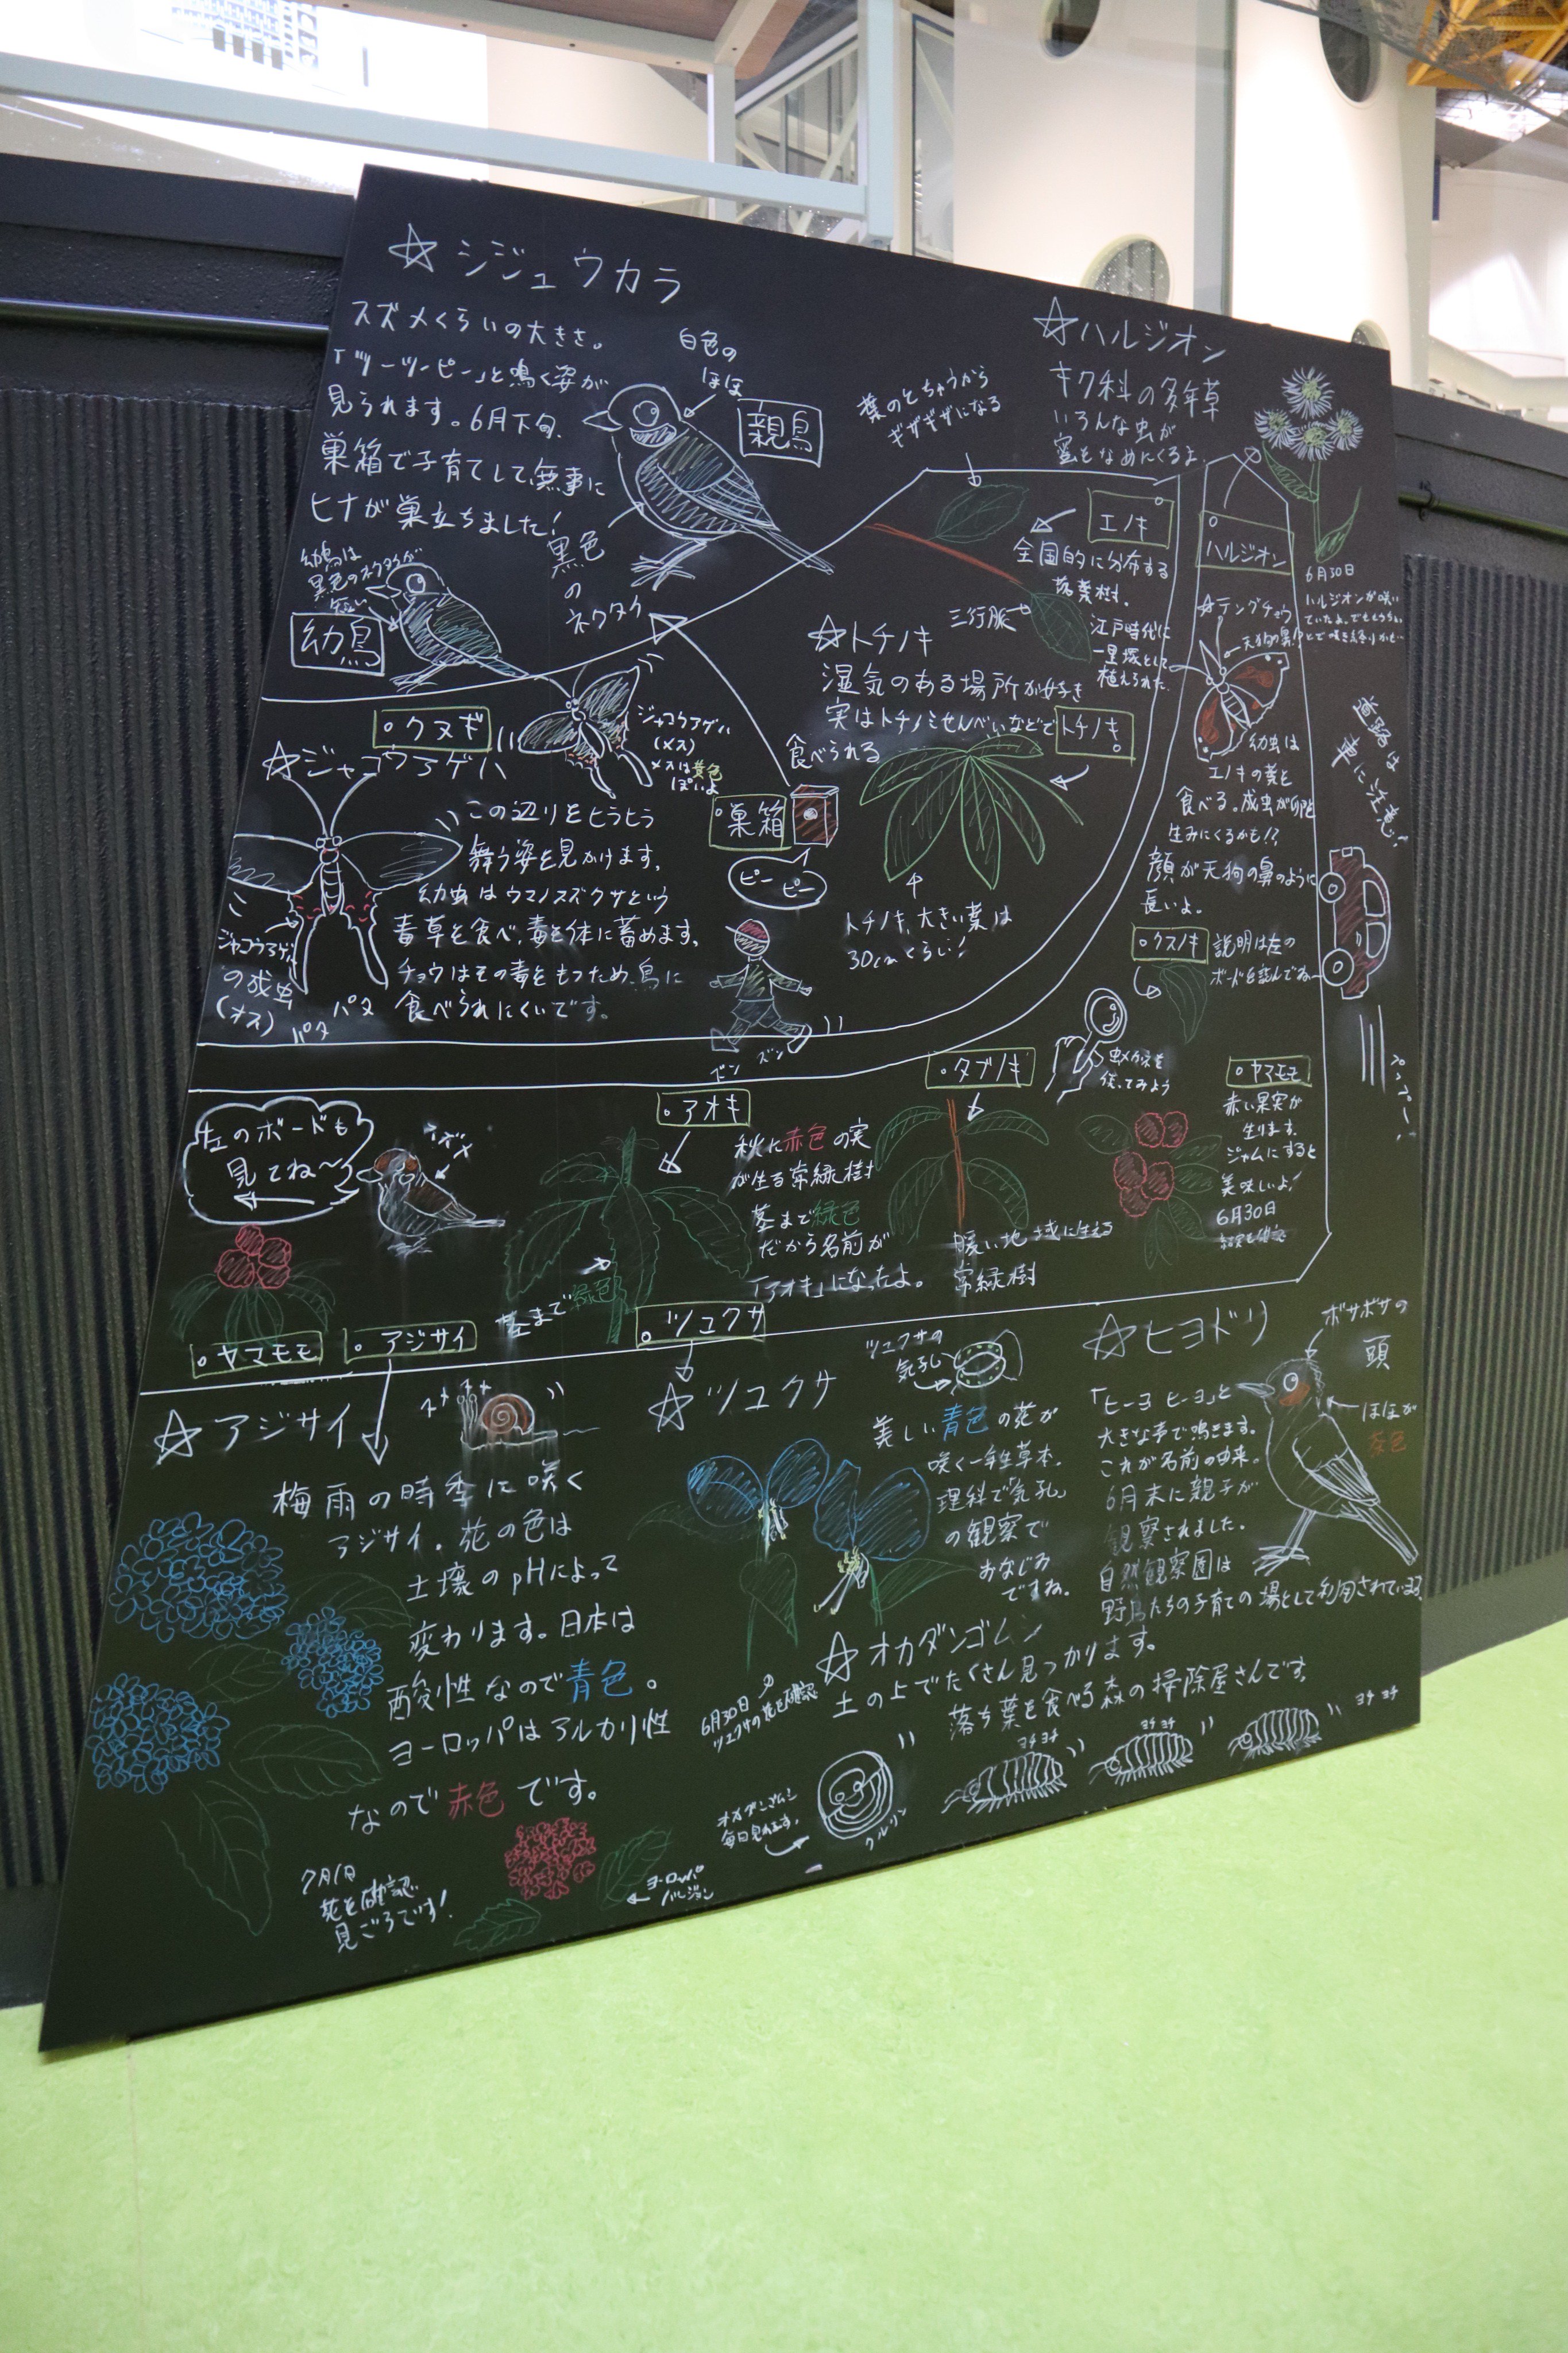 ☆シジュウカラ
スズメくらいの大きさ。
「ツーツーピー」と鳴く姿が
見られます。6月下旬、
巣箱で子育てして無事に
ヒナが巣立ちました!
白色の
ほほ
親鳥
黒色
の
ネクタイ
幼鳥は
黒色のネクタイが
短い
幼鳥
☆ハルジオン
キク科の多年草
いろんな虫が
蜜をなめにくるよ
葉のとちゅうから
ギザギザになる
エノキ
全国的に分布する
落葉樹。
三行脈
江戸時代に
一里塚として
植えられた
ハルジオン
6月30日
ハルジオンが咲い
☆テングチョウ
天狗の鼻!?
幼虫は
エノキの葉を
食べる。成虫が卵を
生みにくるかも!?
顔が天狗の鼻のように
長いよ。
道路は
車に注意!
☆トチノキ
湿気のある場所が好き
実はトチノミせんべいなどで
食べられる
トチノキ
トチノキ、大きい葉は
30cmくらい!
クヌギ
☆ジャコウアゲハ
ジャコウアゲハ
(メス)
メスは黄色
ぽいよ
この辺りをヒラヒラ
舞う姿を見かけます。
幼虫はウマノスズクサという
毒草を食べ、毒を体に蓄めます。
チョウはその毒をもつため、鳥に
食べられにくいです。
ジャコウアゲハ
の成虫
(オス)
パタ
パタ
巣箱
ピー ピー
ズン
ズン
クスノキ
説明は左の
ボードを読んでね
虫メガネを
使ってみよう
左のボードも
見てね〜
スズメ
アオキ
秋に赤色の実
が生る常緑樹
茎まで緑色
だから名前が
「アオキ」になったよ。
茎まで緑色
タブノキ
暖い地域に生える
常緑樹
ヤマモモ
赤い果実が
生ります。
ジャムにすると
美味しいよ!
6月30日
ヤマモモ
アジサイ
ツユクサ
☆アジサイ
梅雨の時季に咲く
アジサイ。花の色は
土壌のpHによって
変わります。日本は
酸性なので青色。
ヨーロッパはアルカリ性
なので赤色です。
7月1日
花を確認
見ごろです!
ヨーロッパ
バージョン
☆ツユクサ
ツユクサの
気孔
美しい青色の花が
咲く一年生草本。
理科で「気孔」
の観察で
おなじみ
ですね。
6月30日
ツユクサの花を確認
☆ヒヨドリ
ボサボサの
頭
ほほが
茶色
「ヒーヨ ヒーヨ」と
大きな声で鳴きます。
これが名前の由来。
6月末に親子が
観察されました。
自然観察園は
野鳥たちの子育ての場として利用されている
☆オカダンゴムシ
土の上でたくさん見つかります。
落ち葉を食べる森の掃除屋さんです。
オカダンゴムシ
毎日見れます。
クルリン
ヨチヨチ
ヨチヨチ
ヨチ ヨチ